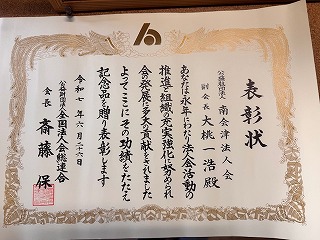 表彰状
公益社団法人 南会津法人会
副会長 大桃一浩殿
あなたは永年にわたり法人会活動の
推進と組織の充実強化に努められ
会の発展に多大の貢献をされました
よってここにその功績をたたえ
記念品を贈り表彰します
令和七年六月二十六日
公益財団法人 全国法人会総連合
会長 斎藤保